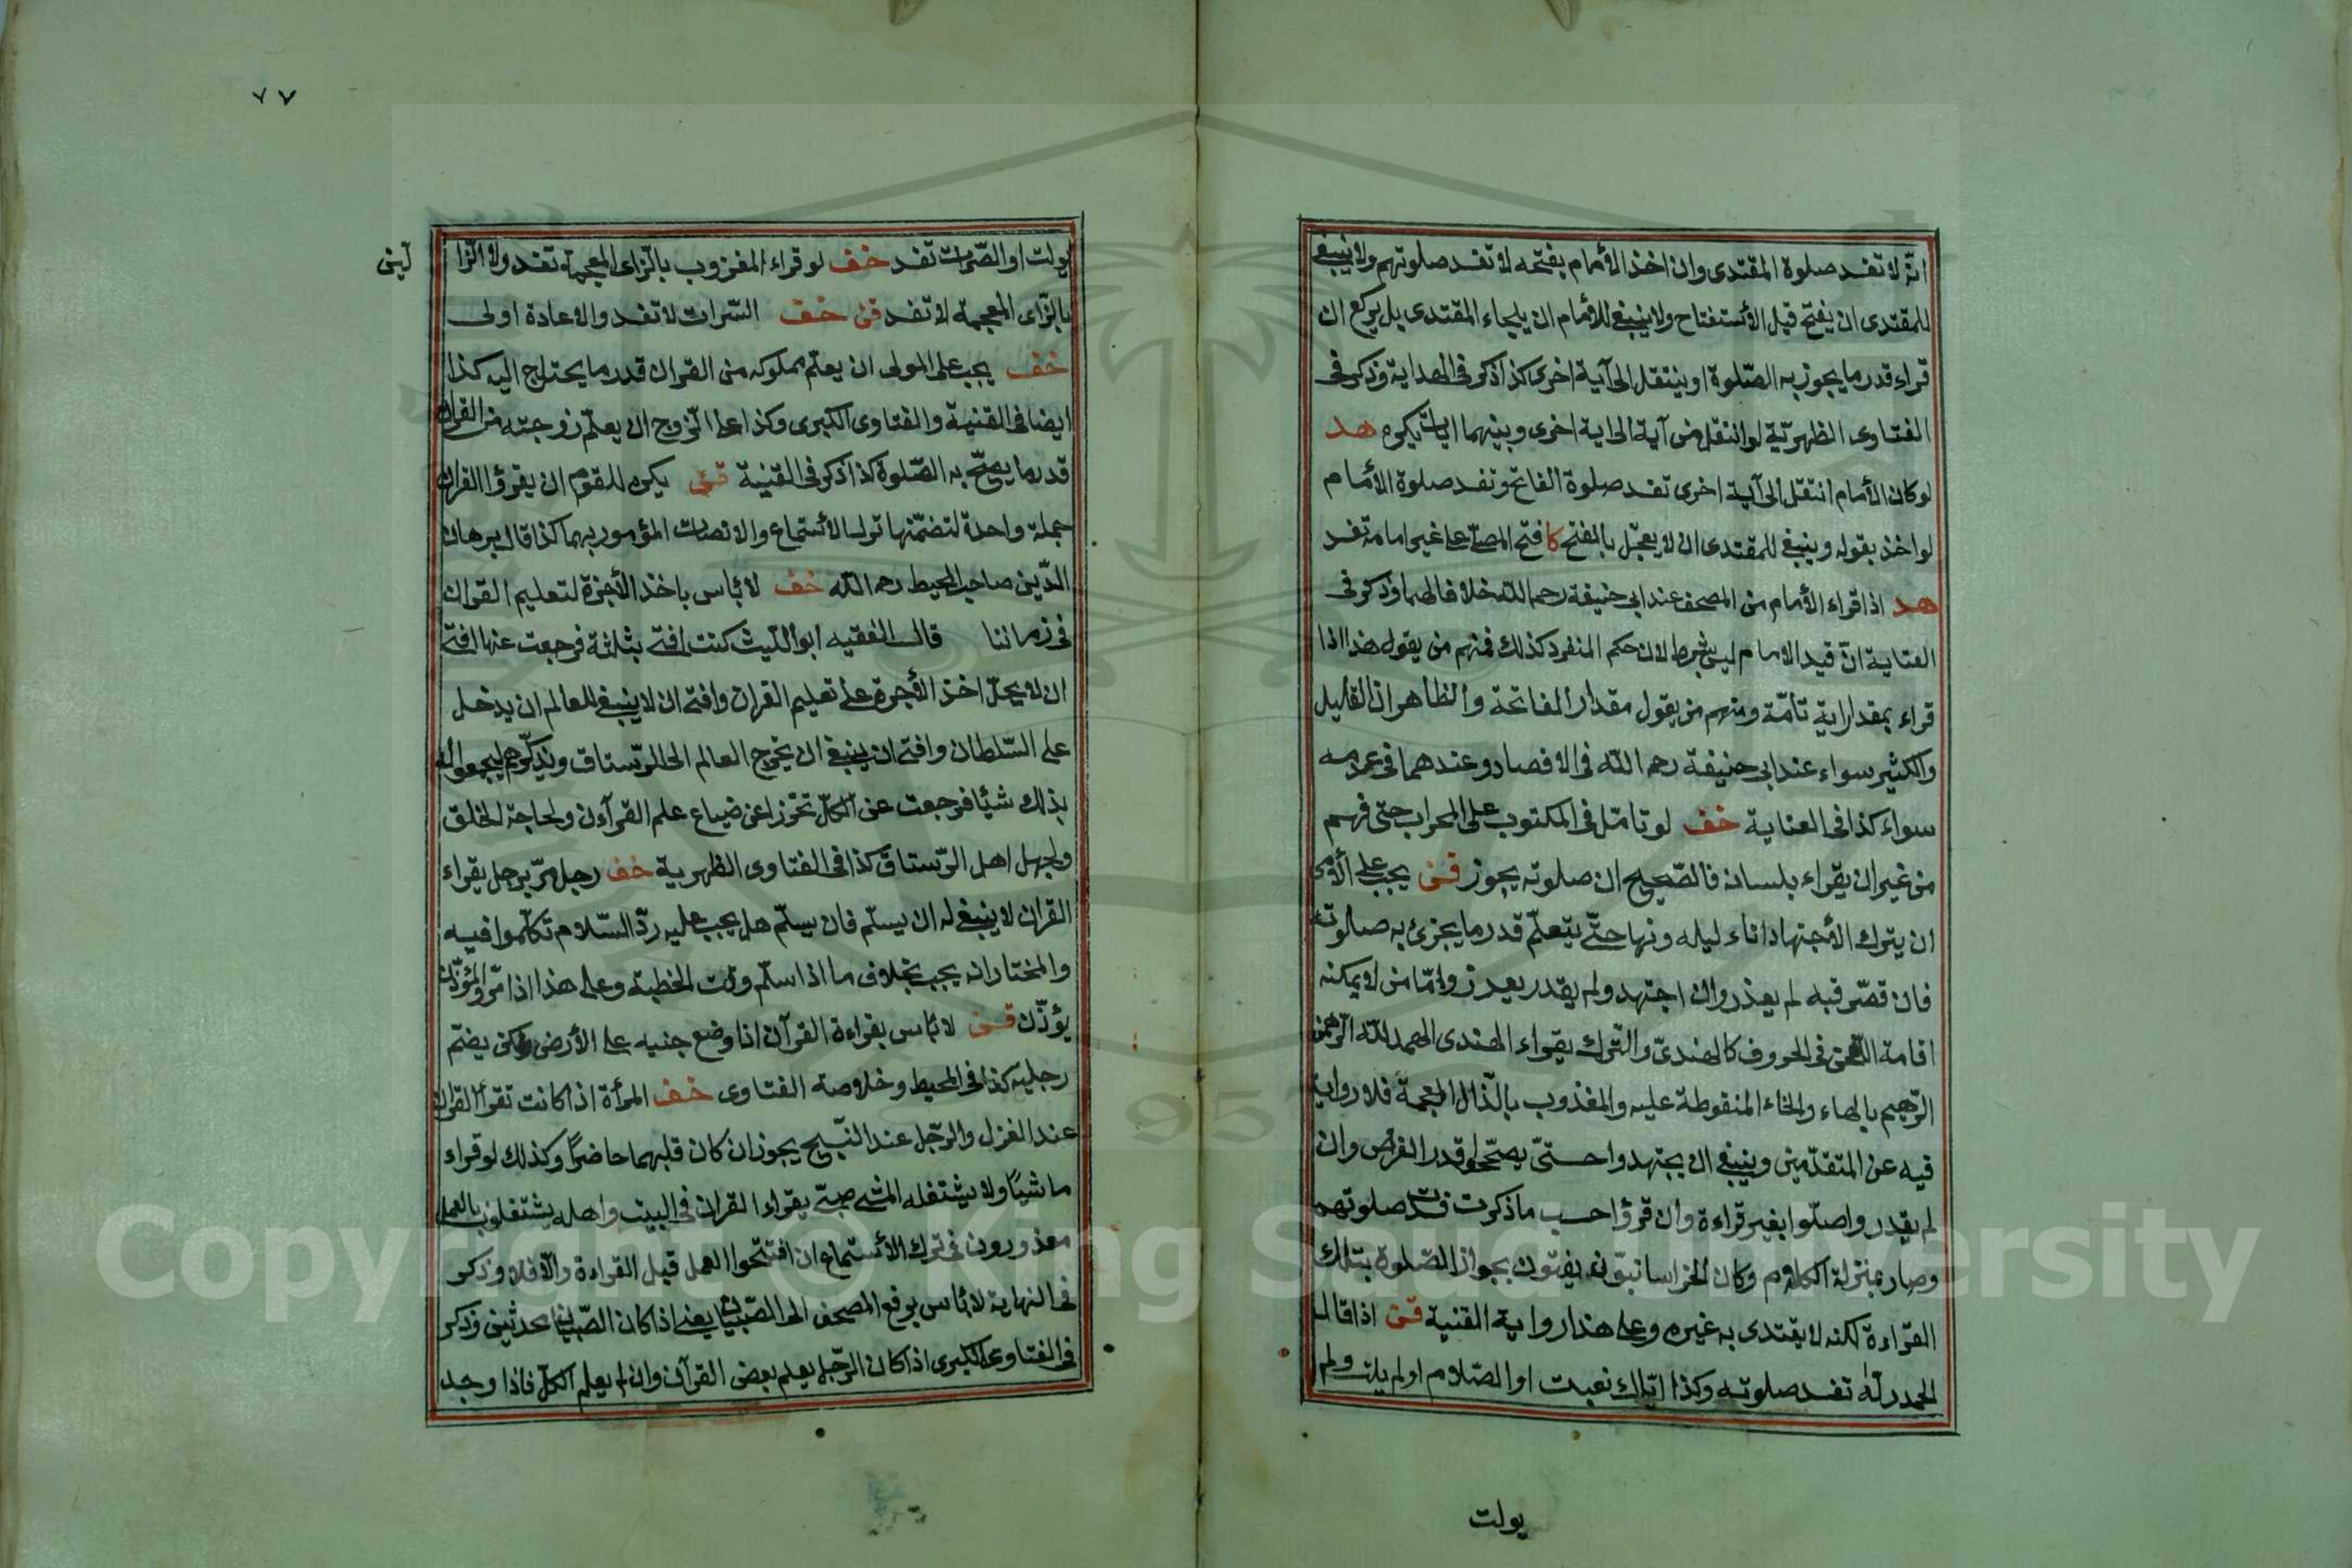 انّه لا تفسد صلوة المقتدى وان اخذ الأمام بفتحه لا تفسد صلوتهم ولا ينبغى
للمقتدى ان يفتح قبل الأستفتاح ولا ينبغى للأمام ان يلجاء المقتدى بل يركع ان
قراء قدر ما يجوز به الصّلوة او ينتقل الى آية اخرى كذا ذكر فى الهداية وذكر فى
الفتاوى الظهريّة لو انتقل من آية الى اية اخرى وبينهما ايات يكره هد
لو كان الأمام انتقل الى آية اخرى تفسد صلوة الفاتح وتفسد صلوة الأمام
لو اخذ بقوله وينبغى للمقتدى ان لا يعجّل بالفتح كا فتح المصلّى على غير امامه تفسد
هد اذا قراء الأمام من المصحف عند ابى حنيفة رحمه الله خلافا لهما وذكر فى
العناية انّ قيد الامام ليس بشرط لان حكم المنفرد كذلك فمنهم من يقول هذا اذا
قراء بمقدار اية تامّة ومنهم من يقول مقدار الفاتحة والظاهر ان القليل
والكثير سواء عند ابى حنيفة رحمه الله فى الافصاد وعندهما فى عدمه
سواء كذا فى العناية خف لو تامّل فى المكتوب على المحراب حتى فهم
من غير ان يقراء بلسانه فالصّحيح ان صلوته يجوز قن يجب على الأمى
ان يترك الأجتهاد اناء ليله ونها حتّى يتعلّم قدر ما يجزئ به صلوته
فان قصّر فيه لم يعذر وان اجتهد ولم يقدر يعذر وامّا من لا يمكنه
اقامة اللّحن فى الحروف كالهندىّ والترك يقراء الهندى الهمد لله الرّهمن
الرّحيم بالهاء والخاء المنقوطة عليه والمغذوب بالذال المعجمة فلا رواية
فيه عن المتقدّمين وينبغى ان يجتهد واحتىّ يصحّحوا قدر الفرض وان
لم يقدر واصلّوا بغير قراءة وان قرؤا حسب ما ذكرت فسدت صلوتهم
وصار بمنزلة الكلام وكان الخراسانيّون يفتون بجواز الصّلوة بتلك
القراءة لكنه لا يقتدى به غيره وعلى هذا رواية القنية قن اذا قال
الحمدرلّه تفسد صلوته وكذا ايّاك نعبت او الصّلام او لم يلت ولم
يولت
٧٧
يولت او الصّرات تفسد خف لو قراء المغزوب بالزاى المعجمة تفسد ولا الزا
لين
بالزّاى المعجمة لا تفسد قن خف السّرات لا تفسد والاعادة اولى
خف يجب على المولى ان يعلّم مملوكه من القران قدر ما يحتاج اليه كذا
ايضا فى القنية والفتاوى الكبرى وكذا على الزوج ان يعلّم زوجته من القران
قدر ما يصحّ به الصّلوة كذا ذكر فى القنية قن يكره للقوم ان يقرؤا القران
جملة واحدة لتضمّنها ترك الأستماع والانصات المؤمور بهما كذا قال برهان
الدّين صاحب المحيط رحمه اللّه خف لا باس باخذ الأجرة لتعليم القران
فى زماننا قال الفقيه ابو اللّيث كنت افتى بثلثة فرجعت عنها افتى
ان لا يحلّ اخذ الأجرة على تعليم القران وافتى ان لا ينبغى للعالم ان يدخل
على السّلطان وافتى ان ينبغى ان يخرج العالم الى الرّستاق ويذكّرهم ليجمعوا له
بذلك شيئا فرجعت عن الكلّ تحرّزا عن ضياع علم القرآءن ولحاجة الخلق
ولجهل اهل الرّستاق كذا فى الفتاوى الظهرية خف رجل مرّ برجل يقراء
القران لا ينبغى له ان يسلّم فان سلّم هل يجب عليه ردّ السّلام تكلّموا فيه
والمختار انه يجب بخلاف ما اذا سلّم وقت الخطبة وعلى هذا اذا مرّ والمؤذّن
يؤذّن قن لا باس بقراءة القرآن اذا وضع جنبه على الأرض ولكن يضمّ
رجليه كذا فى المحيط وخلاصة الفتاوى خف المرأة اذا كانت تقرأ القران
عند الغزل والرجل عند النّسيج يجوز ان كان قلبهما حاضرًا وكذلك لو قراء
ماشيًا ولا يشتغله المشى صبىّ يقراء القران فى البيت واهله يشتغلون بالعمل
معذورون فى ترك الأستماع ان افتتحوا العمل قبل القراءة والّا فلا وذكر
فى النهاية لا باس برفع المصحف الى الصّبيان يعنى اذا كان الصّبيان محدثين وذكر
فى الفتاوى الكبرى اذا كان الرّجل يعلم بعض القرآن وان لم يعلم الكلّ فاذا وجد
Copyright © King Saud University